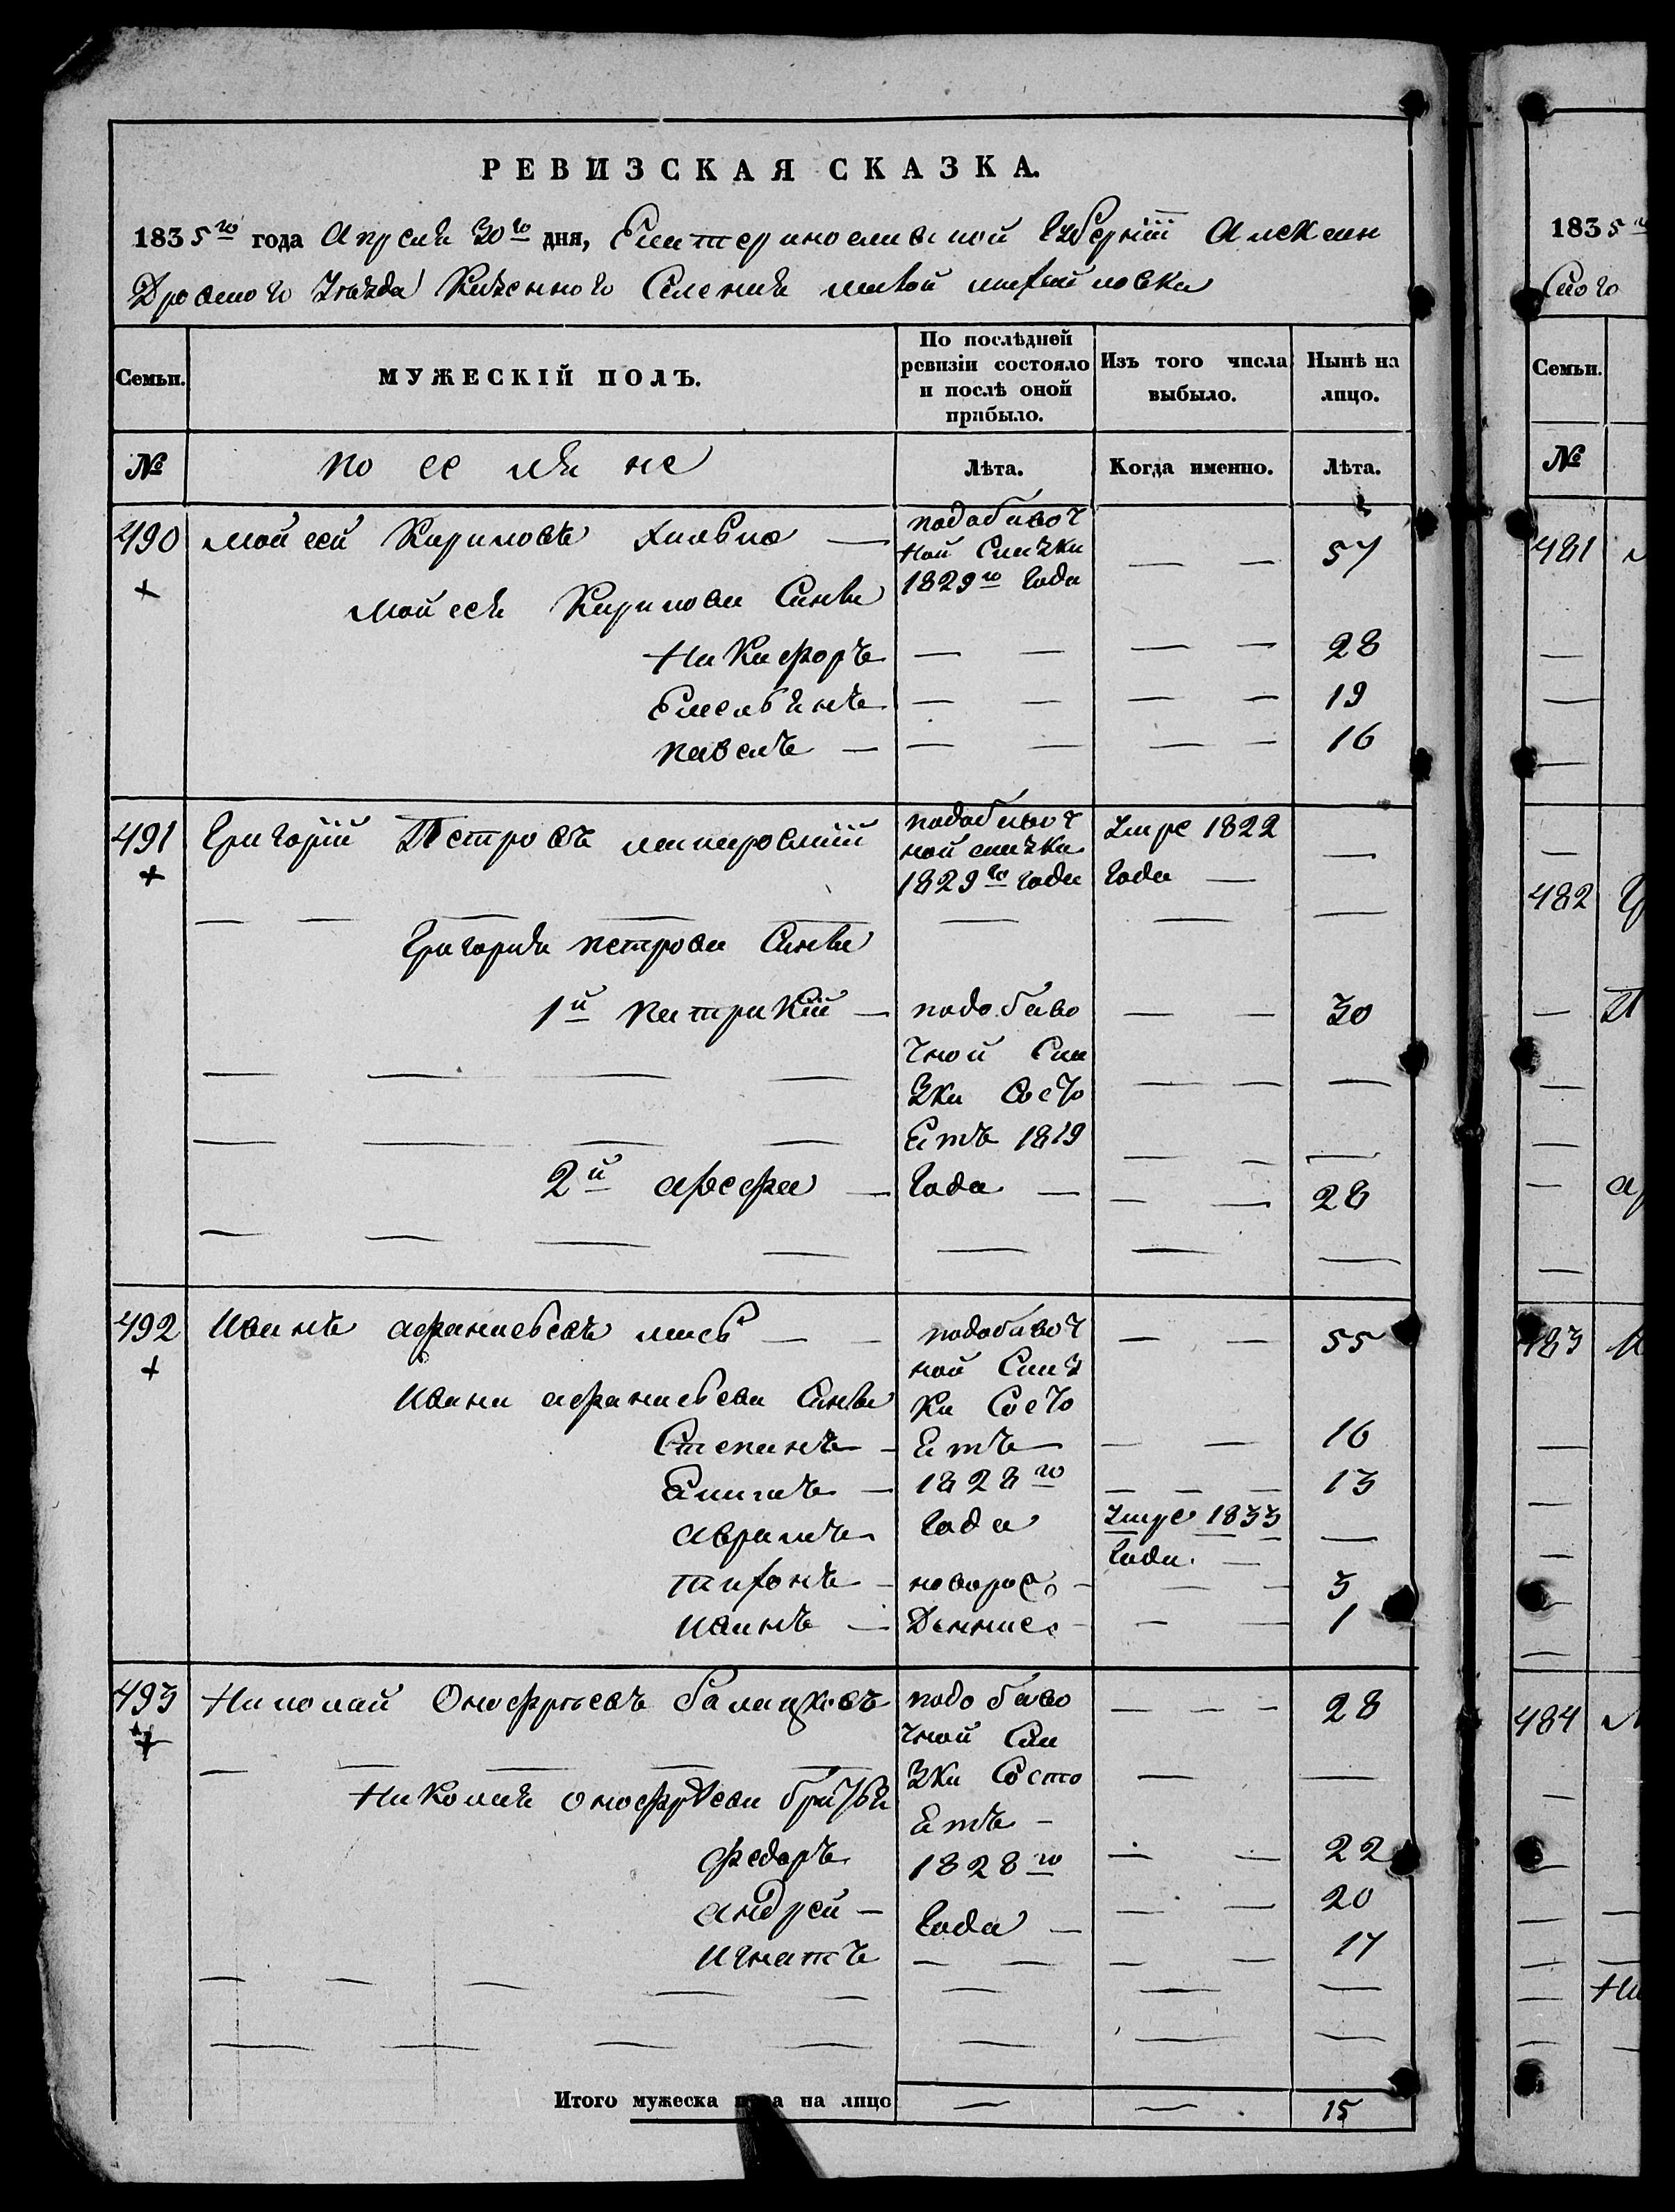 РЕВИЗСКАЯ СКАЗКА.
1835го года Апреля 30го дня, Екатеринославской Губернiи Александровского Уѣзда Казенного Селения
Семьи. МУЖЕСКIЙ ПОЛЪ. По послѣдней ревизiи состояло и послѣ оной прибыло. Изъ того числа выбыло. Нынѣ на лицо.
№ Поселяне Лѣта. Когда именно. Лѣта.
490 Мойсей Кириловъ — подобавочной сказки 1829го года — — 57
Мойсея Кирилова Синьи
Никифоръ — — — — 28
Емельянъ — — — — 19
Павелъ — — — — — 16
491 Григорiй Петровъ подобавочной сказки 1829го года Умре 1822 года — —
Григория Петрова Синьи
1й Патрикiй — подобавочной сказки состоятъ 1829 года — — 30
2й — — — 28
492 Иванъ Афанасьевъ — — подобавочной сказки состоятъ 1828го года — — 55
Ивана Афанасьева Синьи
Степанъ — — — 16
— — — — 13
Аврамъ Умре 1833 года — —
Тихонъ — новорос — — — 3
Иванъ — денние — — — 1
493 Николай Онофрiевъ подобавочной сказки состоятъ — 1828го года — — — — 28
Николая Онофрiева братья
Федоръ — — 22
Андрей — — — 20
Игнатъ — — — — 17
Итого мужеска пола на лицо — — 15
1835го
ского
Семьи.
№
481
482
483
484